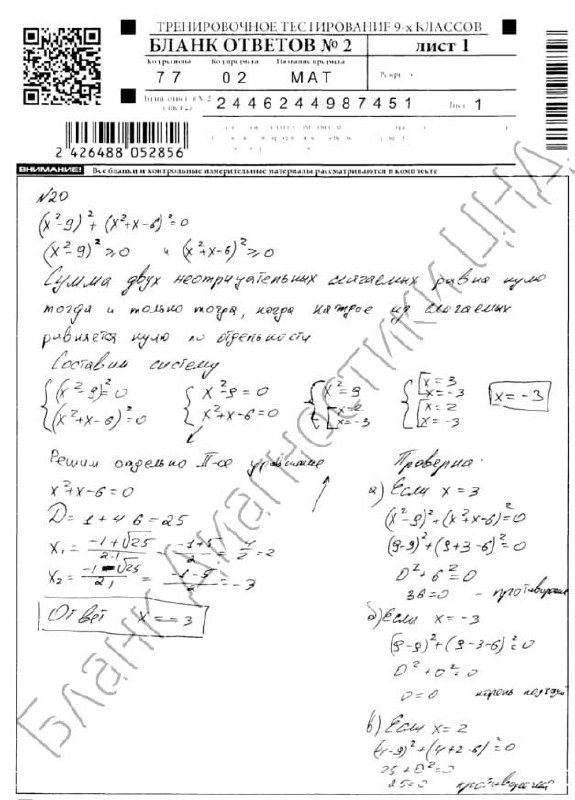 ТРЕНИРОВОЧНОЕ ТЕСТИРОВАНИЕ 9-х КЛАССОВ
БЛАНК ОТВЕТОВ № 2 лист 1
Код региона Код предмета Название предмета
77 02 МАТ Резерв
2446244987451 Лист 1
2 426488 052856
ВНИМАНИЕ! Все бланки и контрольные измерительные материалы рассматриваются в комплекте
№20
(x²-9)²+(x²+x-6)²=0
(x²-9)²≥0 и (x²+x-6)²≥0
Сумма двух неотрицательных слагаемых равна нулю
тогда и только тогда, когда каждое из слагаемых
равняется нулю по отдельности
Составим систему
{(x²-9)²=0 {x²-9=0 {x²=9 {[x=3
{(x²+x-6)²=0 {x²+x-6=0 {[x=2 [x=-3
[x=-3 {[x=2
[x=-3
x=-3
Решим отдельно II-ое уравнение
x²+x-6=0
D=1+4·6=25
x₁=(-1+√25)/2·1=(-1+5)/2=4/2=2
x₂=(-1-√25)/2·1=(-1-5)/2=-3
Ответ x=-3
Проверка:
а) Если x=3
(x²-9)²+(x²+x-6)²=0
(9-9)²+(9+3-6)²=0
0²+6²=0
36=0 - противоречие
б) Если x=-3
(9-9)²+(9-3-6)²=0
0²+0²=0
0=0 корень подходит
в) Если x=2
(4-9)²+(4+2-6)²=0
25+0²=0
25=0 противоречие
Бланк диагностики ЦНД.